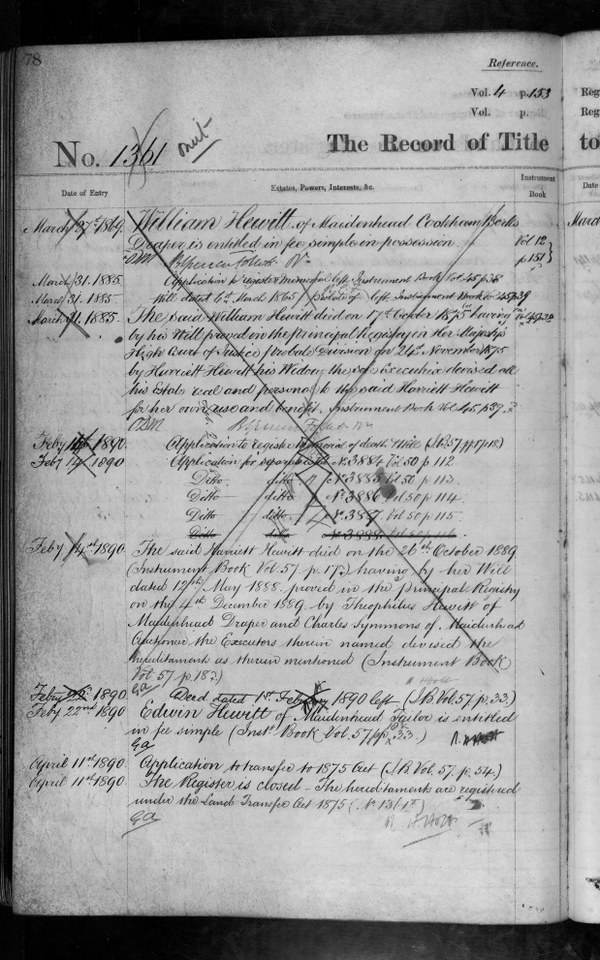 78
Reference.
Vol. 4 p. 153
Vol. p.
No. 1361
The Record of Title
Date of Entry
Estates, Powers, Interests, &c.
Instrument Book
March 27th 1869. William Hewitt of Maidenhead Cookham Berks
Draper is entitled in fee simple in possession. Vol 12 p 151
March 31. 1885. Application to register memorial left Instrument Book Vol 45 p 38
March 31. 1885. Will dated 6th March 1865 Probate of left Instrument Book Vol 45 p 39
March 31. 1885. The said William Hewitt died on 17th October 1875 having
by his Will proved in the Principal Registry in Her Majesty's
High Court of Justice Probate Division on 24th November 1875
by Harriett Hewitt his Widow, the sole Executrix devised all
his Estate real and personal to the said Harriett Hewitt
for her own use and benefit. Instrument Book Vol 45, p 37.
Feby 14th 1890. Application to register memorial of death
Feby 14. 1890 Application for No. 3884 Vol 50 p 112
Ditto ditto No. 3885 Vol 50 p 113.
Ditto ditto No. 3886 Vol 50 p 114.
Ditto ditto No. 3887 Vol 50 p 115.
Ditto ditto No. 3888 Vol 50 p 116.
Feby 14th 1890. The said Harriett Hewitt died on the 26th October 1889
(Instrument Book Vol. 57. p. 17.) having by her Will
dated 12th May 1888 proved in the Principal Registry
on the 4th December 1889 by Theophilus Hewitt of
Maidenhead Draper and Charles Symmons of Maidenhead
Auctioneer the Executors therein named devised the
hereditaments as therein mentioned (Instrument Book
Vol 57. p. 18.)
GA
Feby 22 1890. Deed dated 1st February 1890 left (I.B. Vol. 57 p. 33.)
Feby 22nd 1890 Edwin Hewitt of Maidenhead Tailor is entitled
in fee simple (Inst. Book Vol. 57 p 33.)
GA
April 11th 1890. Application to transfer to 1875 Act (I.B. Vol. 57. p. 54.)
April 11th 1890. The Register is closed – The hereditaments are registered
under the Land Transfer Act 1875 (No. 1361 T)
GA
Reg
Reg
to
Date
March